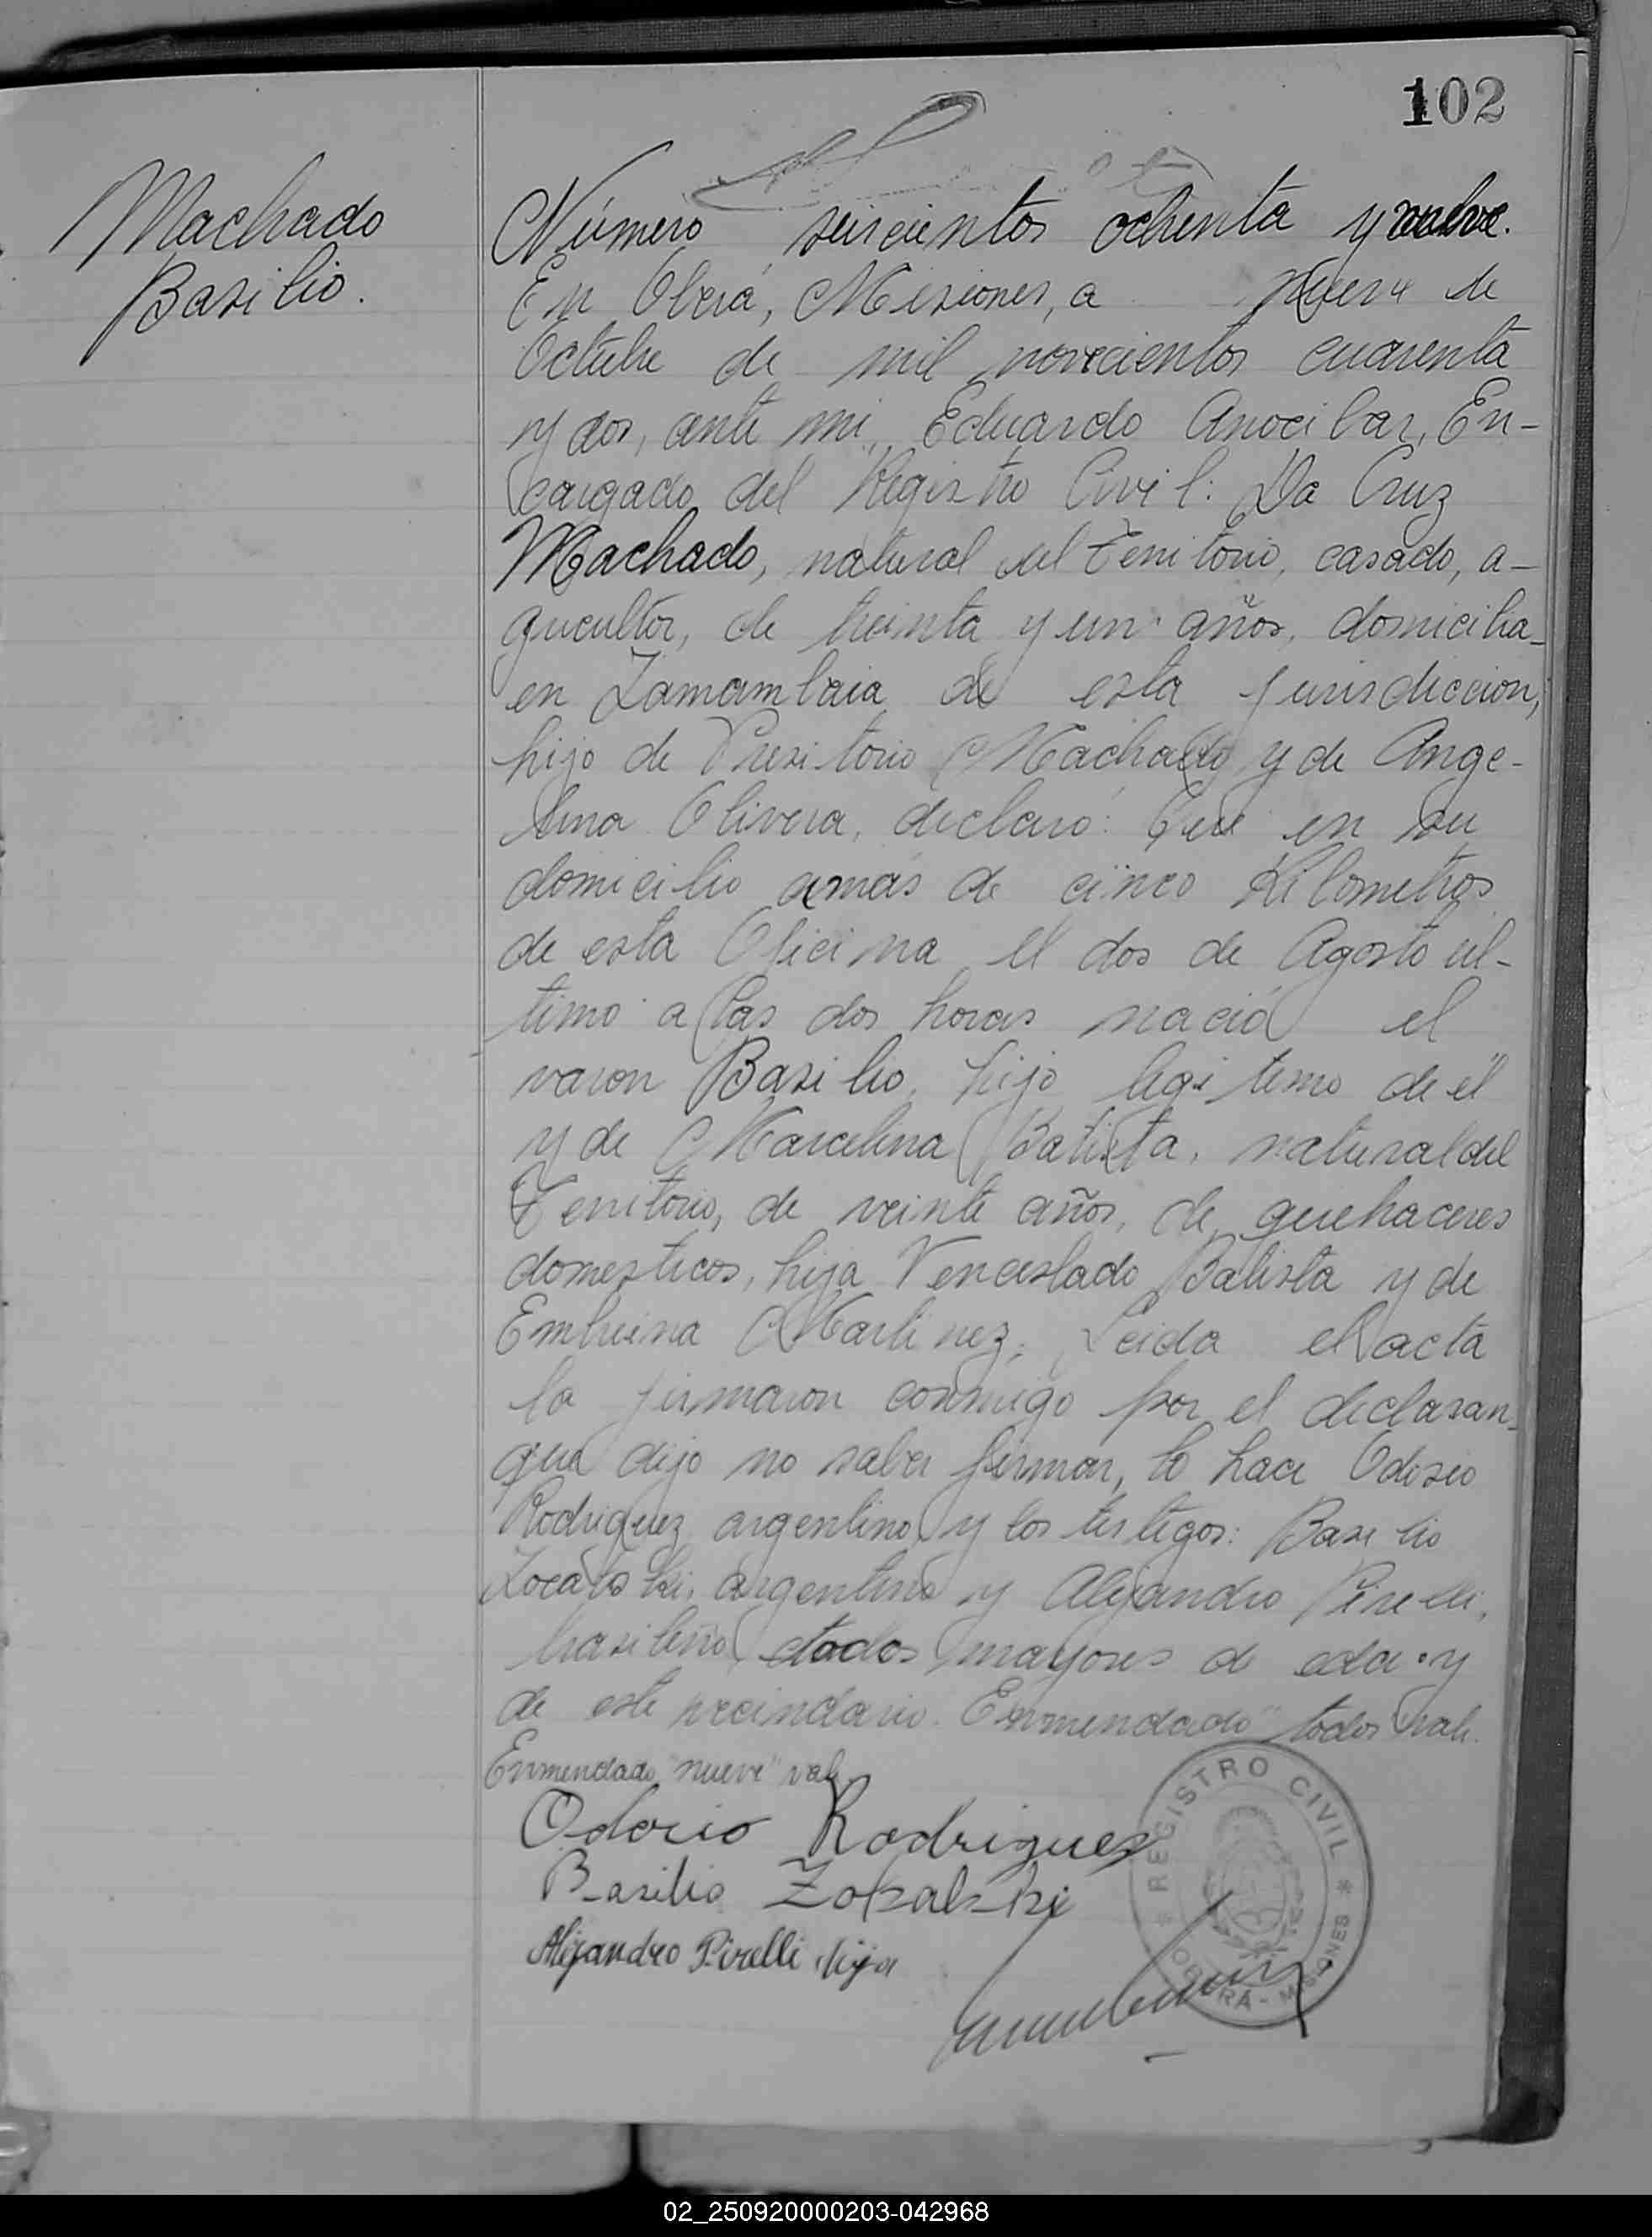 102
Machado
Basilio.
Número seiscientos ochenta y nueve.
En Oberá, Misiones, a nueve de
Octubre de mil novecientos cuarenta
y dos, ante mi, Eduardo Anocibar, En-
cargado del Registro Civil: Da Cruz
Machado, natural del Territorio, casado, a-
gricultor, de treinta y un años, domicilia-
en Zamambaia de esta jurisdiccion,
hijo de Machado y de Ange-
lina Olivera, declaró: Que en su
domicilio a más de cinco Kilometros
de esta Oficina el dos de Agosto úl-
timo a las dos horas nació el
varon Basilio, hijo legitimo de él
y de Marcelina Batista, natural del
Territorio, de veinte años, de quehaceres
domesticos, hija Venceslado Batista y de
Martinez. Leida el acta
la firmaron conmigo por el declaran-
que dijo no saber firmar, lo hace
Rodriguez argentino y los testigos: Basilio
argentino y Alejandro Pirelli,
brasileño todos mayores de eda y
de este vecindario. Enmendado "todos" vale.
Enmendado "nueve" vale
Odorio Rodriguez
Basilio Zokalski
Alejandro Pirelli hijo
REGISTRO CIVIL
OBERÁ - MISIONES
02_250920000203-042968